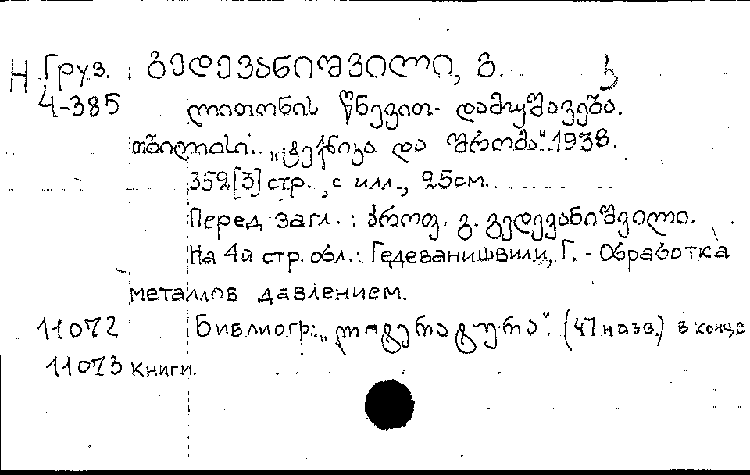 Н Груз. გედევანიშვილი, გ. 3
4-385 ლითონის წნევით დამუშავება.
თბილისი. „ტექნიკა და შრომა“. 1938.
352 [3] стр., с илл., 25см.
Перед загл.: პროფ. გ. გედევანიშვილი.
На 4й стр. обл.: Гедеванишвили, Г. - Обработка
металлов давлением.
11072 Библиогр.: „ლიტერატურა“. (47 назв.) в конце
11073 книги.